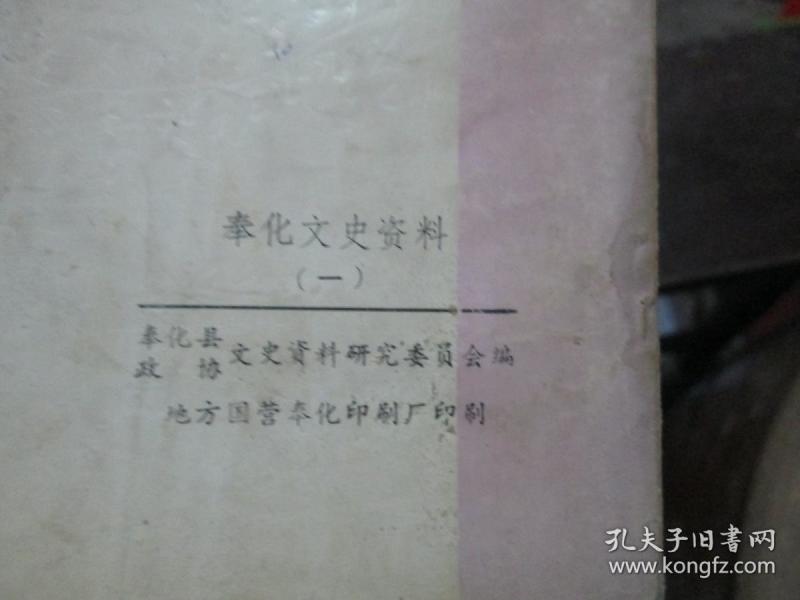 奉化文史资料
（一）
奉化县
政协 文史資料研究委员会编
地方国营奉化印刷厂印刷
孔夫子旧書网
www.kongfz.com